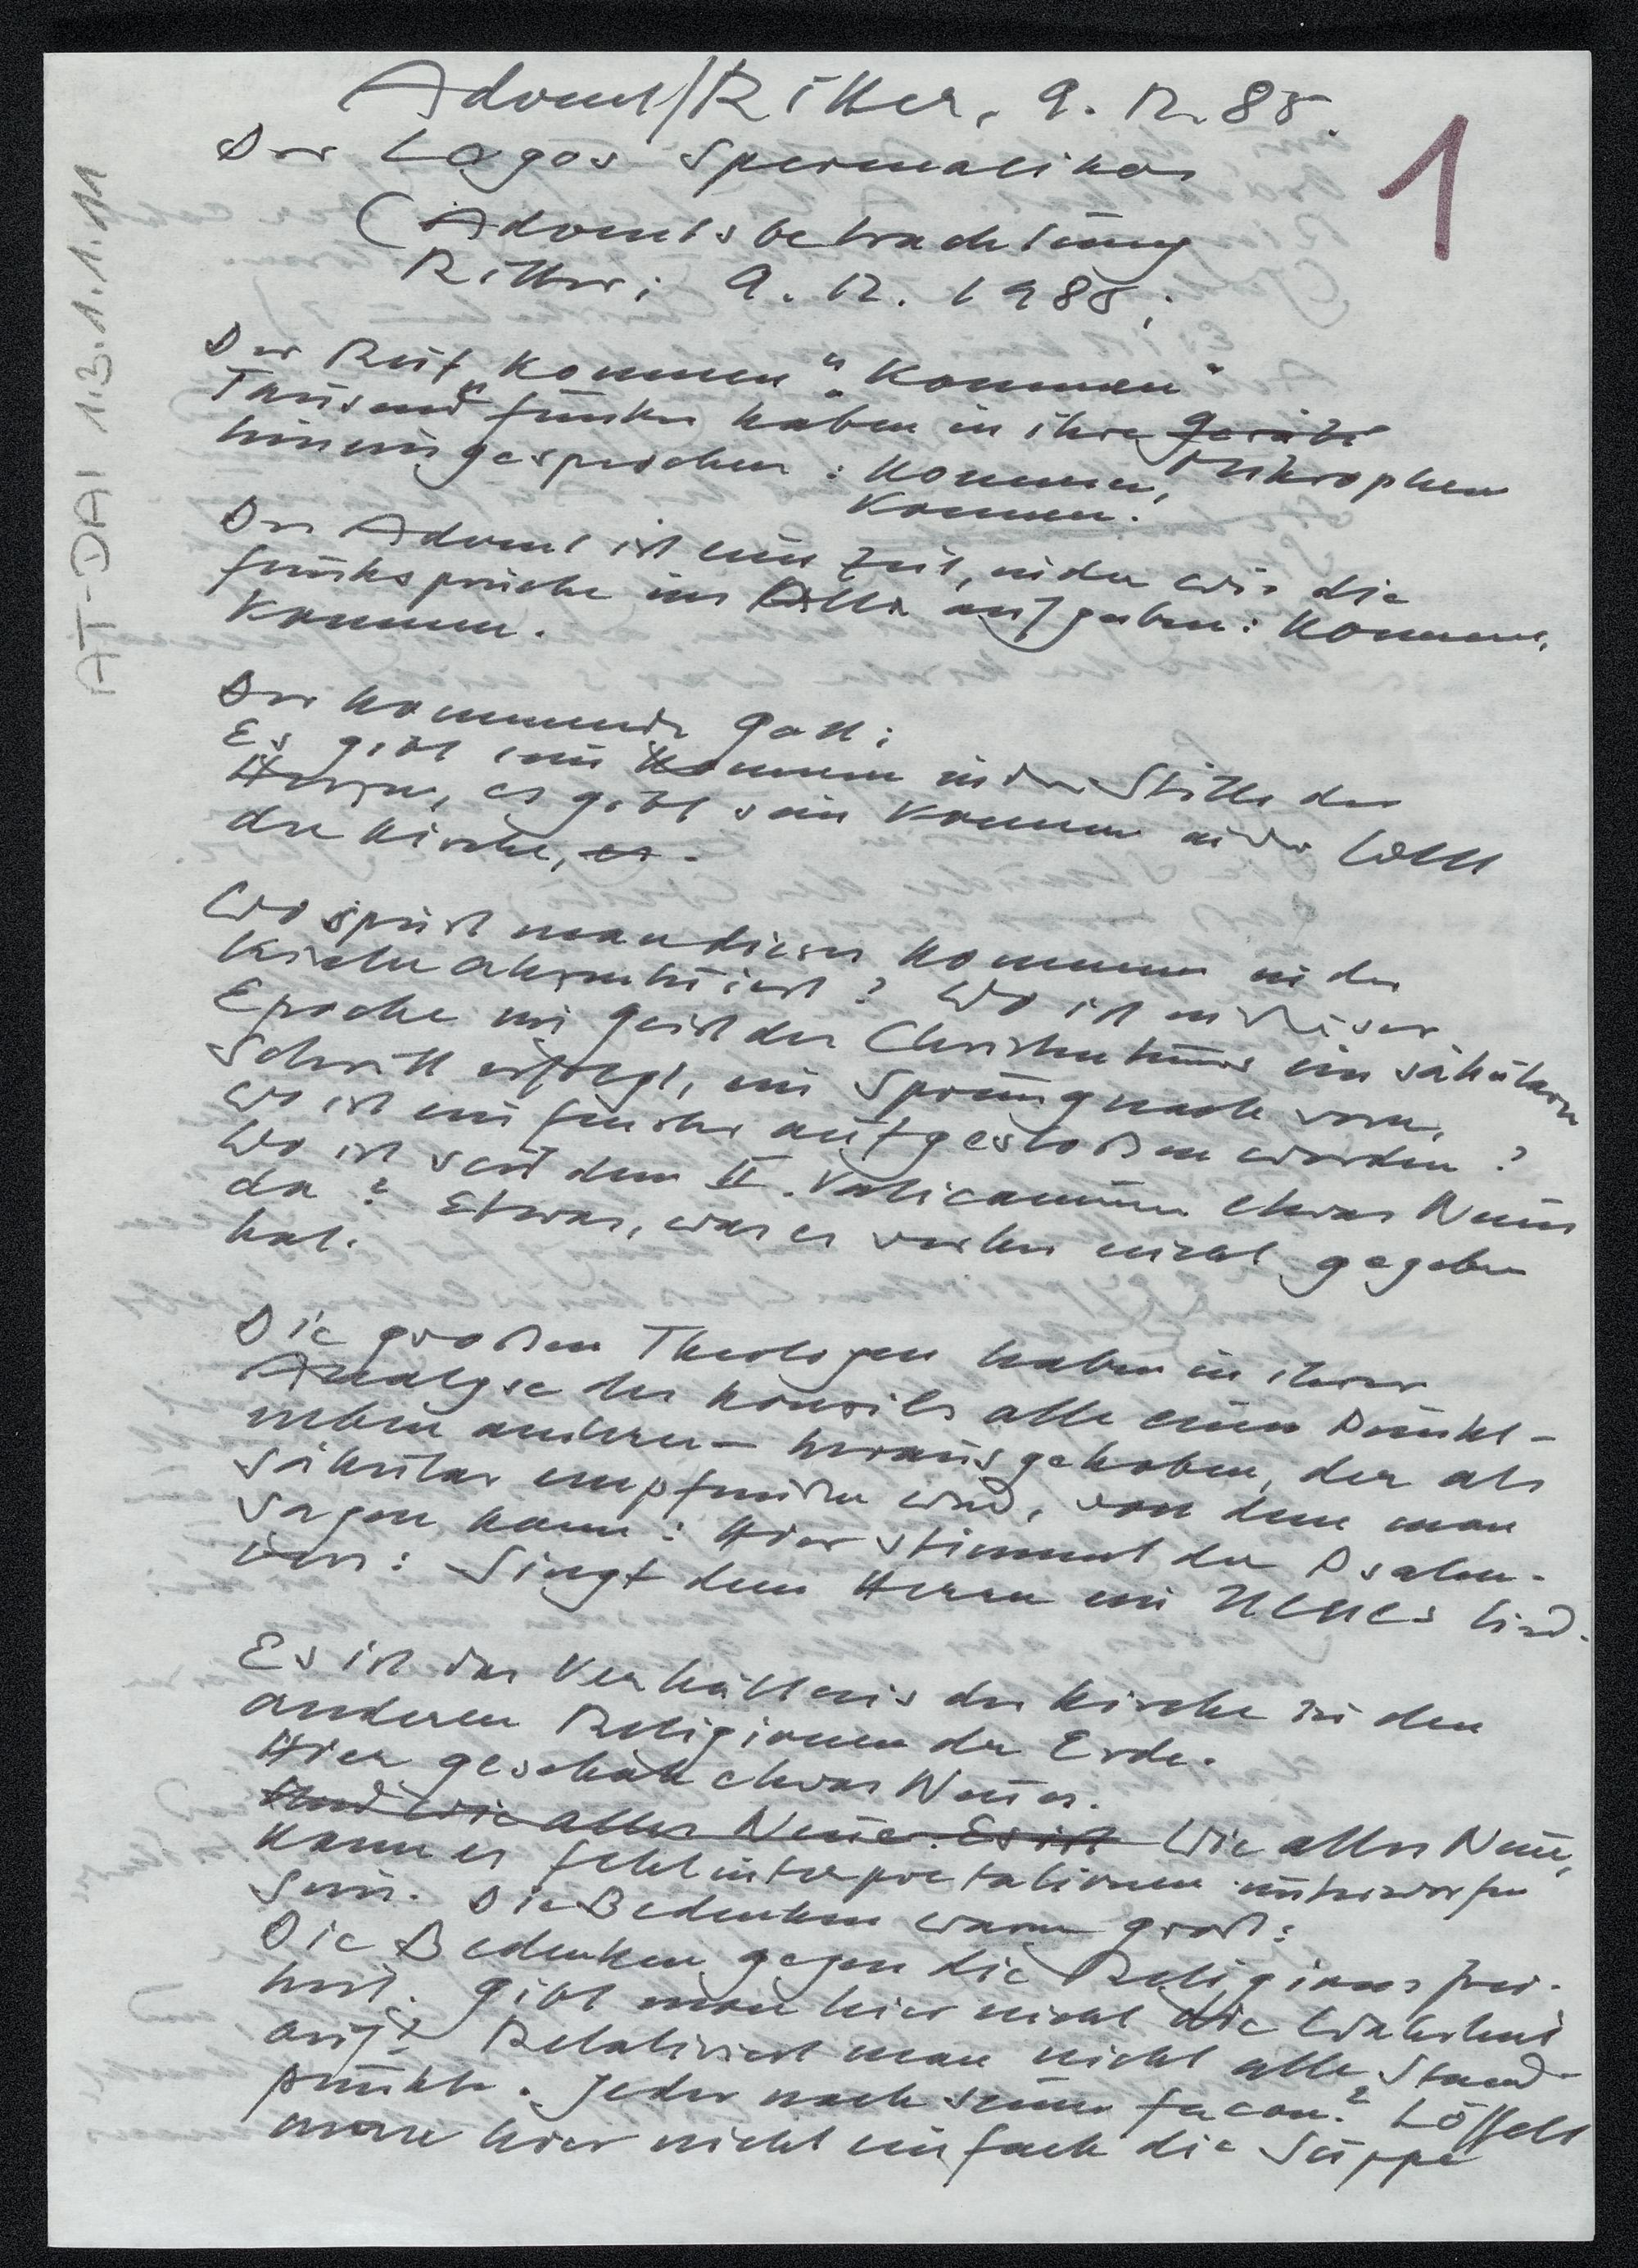 Advent/Ritter, 9. 12. 88.
1
Der Logos Spermatikos
(Adventsbetrachtung
Ritter; 9. 12. 1988;
AT-DAI 1.3.1.1.11
Der Ruf „Kommen" „Kommen"
Tausend Funker haben in ihre Geräte
hineingesprochen: Kommen, Mikrophon
Kommen!
Der Advent ist eine Zeit, in der wir die
Funksprüche ins All aufgeben: Kommen,
Kommen.
Der kommende Gott:
Es gibt sein Kommen in der Stille des
Herzens, es gibt sein Kommen in der Welt
der Kirche, es.
Wo spürt man dieses Kommen in der
Kirche akzentuiert? Wo ist in dieser
Epoche im Geist des Christentums ein säkularer
Schritt erfolgt, ein Sprung nach vorn,
Wo ist ein Fenster aufgestoßen worden?
Wo ist seit dem II. Vaticanum etwas Neues
da? Etwas, was es vorher nicht gegeben
hat.
Die großen Theologen haben in ihrer
Analyse des Konzils alle einen Punkt -
neben anderen - herausgehoben, der als
säkular empfunden wird, von dem man
sagen kann: Hier stimmt der Psalm-
vers: Singt dem Herrn ein NEUES Lied.
Es ist das Verhältnis der Kirche zu den
anderen Religionen der Erde.
Hier geschah etwas Neues.
Und wie alles Neue. Es ist Wie alles Neue,
kann es Fehlinterpretationen unterworfen
sein. Die Bedenken waren groß:
Die Bedenken gegen die Religionsfrei-
heit. Gibt man hier nicht die Wahrheit
auf? Relativiert man nicht alle Stand-
punkte. Jeder nach seiner facon? Löffelt
man hier nicht einfach die Suppe